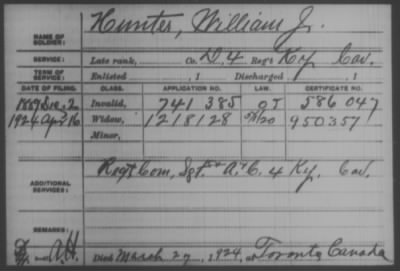 NAME OF SOLDIER: Hunter, William Jr.
SERVICE: Late rank, Co. D, 4 Reg't Ky. Cav.
TERM OF SERVICE: Enlisted , 1 Discharged , 1
DATE OF FILING. CLASS. APPLICATION NO. LAW. CERTIFICATE NO.
1889 Dec. 2 Invalid, 741 385 586 047
1924 Apr 16 Widow, 1218128 950357
Minor,
ADDITIONAL SERVICES: Reg't Com, Sgt. A. C. 4 Ky. Cav.
REMARKS:
Died March 27, 1924, at Toronto Canada